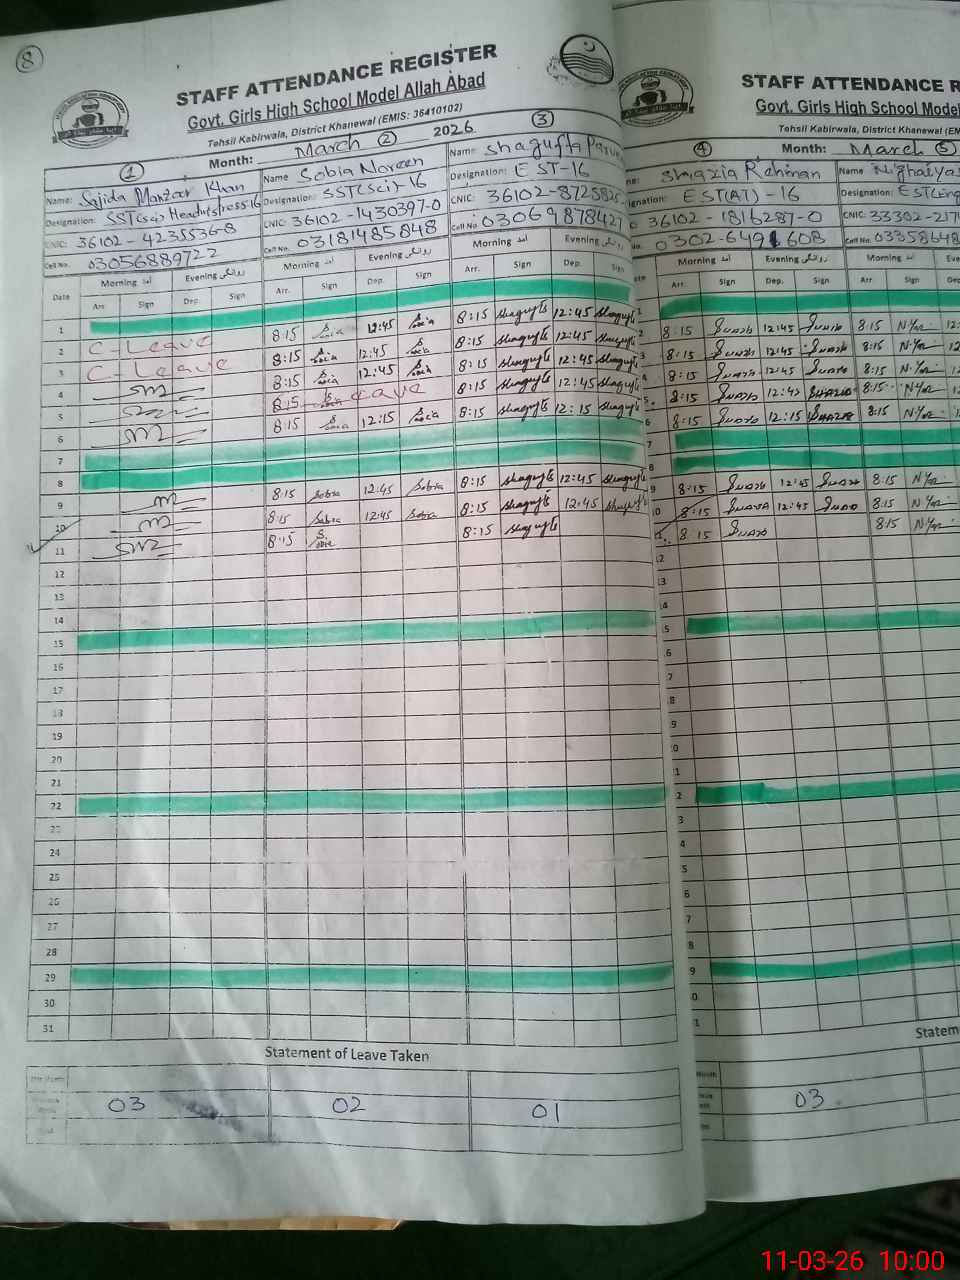 8
STAFF ATTENDANCE REGISTER
Govt. Girls High School Model Allah Abad
Tehsil Kabirwala, District Khanewal (EMIS: 36410102)
Month: March 2026
1
Name: Sajida Manzoor Khan
Designation: SST(Sci) Headmistress-16
CNIC: 36102-4235536-8
Cell No. 03056889722
2
Name Sobia Noreen
Designation: SST(Sci)-16
CNIC: 36102-1430397-0
Cell No. 03181485848
3
Name: Shagufta Parveen
Designation: EST-16
CNIC: 36102-8725825
Cell No. 03069878427
Date
Morning آمد Evening روانگی Morning آمد Evening روانگی Morning آمد Evening روانگی
Arr. Sign Dep. Sign Arr. Sign Dep. Sign Arr. Sign Dep. Sign
1
2 C-Leave 8:15 Sobia 12:45 Sobia 8:15 Shagufta 12:45 Shagufta
3 C-Leave 8:15 Sobia 12:45 Sobia 8:15 Shagufta 12:45 Shagufta
4 8:15 Sobia 12:45 Sobia 8:15 Shagufta 12:45 Shagufta
5 8:15 Leave 8:15 Shagufta 12:45 Shagufta
6 8:15 Sobia 12:15 Sobia 8:15 Shagufta 12:15 Shagufta
7
8
9 8:15 Sobia 12:45 Sobia 8:15 Shagufta 12:45 Shagufta
10 8:15 Sobia 12:45 Sobia 8:15 Shagufta 12:45 Shagufta
11 8:15 Sobia 8:15 Shagufta
12
13
14
15
16
17
18
19
20
21
22
23
24
25
26
27
28
29
30
31
Statement of Leave Taken
03 02 01
STAFF ATTENDANCE R
Govt. Girls High School Model
Tehsil Kabirwala, District Khanewal (EM
Month: March
4
Shazia Rehman
EST(AT)-16
36102-1816287-0
0302-6491608
5
Name
Designation: EST(Eng
CNIC: 33302-217
Cell No. 03358648
Morning آمد Evening روانگی Morning آمد Eve
Arr. Sign Dep. Sign Arr. Sign Dep
8:15 12:45 8:15 12
8:15 12:45 8:15 12
8:15 12:45 8:15
8:15 12:45 8:15
8:15 12:15 8:15
8:15 12:45 8:15
8:15 12:45 8:15
8:15 8:15
Statem
03
11-03-26 10:00